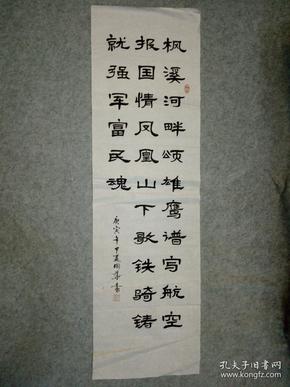 枫溪河畔颂雄鹰谱写航空
报国情凤凰山下歌铁骑铸
就强军富民魂
庚寅年
孔夫子旧书网